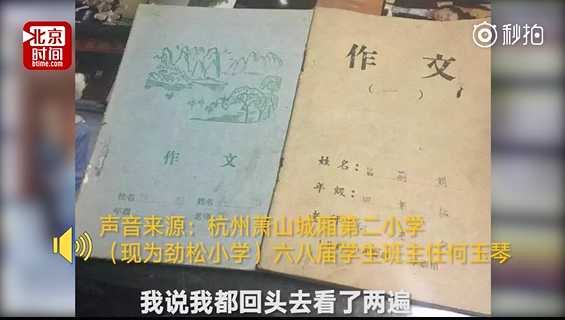 北京
时间
btime.com
秒拍
作文
（一）
姓名：
年级：四
作文
校名
姓名
年级
声音来源：杭州萧山城厢第二小学
（现为劲松小学）六八届学生班主任何玉琴
我说我都回头去看了两遍